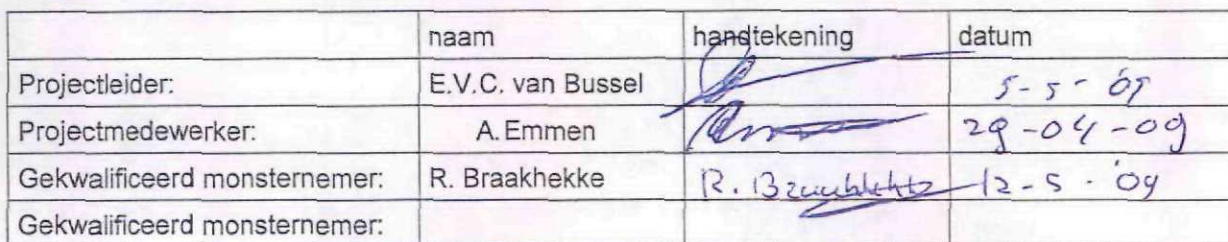 naam handtekening datum
Projectleider: E.V.C. van Bussel 5-5-'09
Projectmedewerker: A. Emmen 29-04-09
Gekwalificeerd monsternemer: R. Braakhekke R. Braakhekke 12-5-'09
Gekwalificeerd monsternemer: